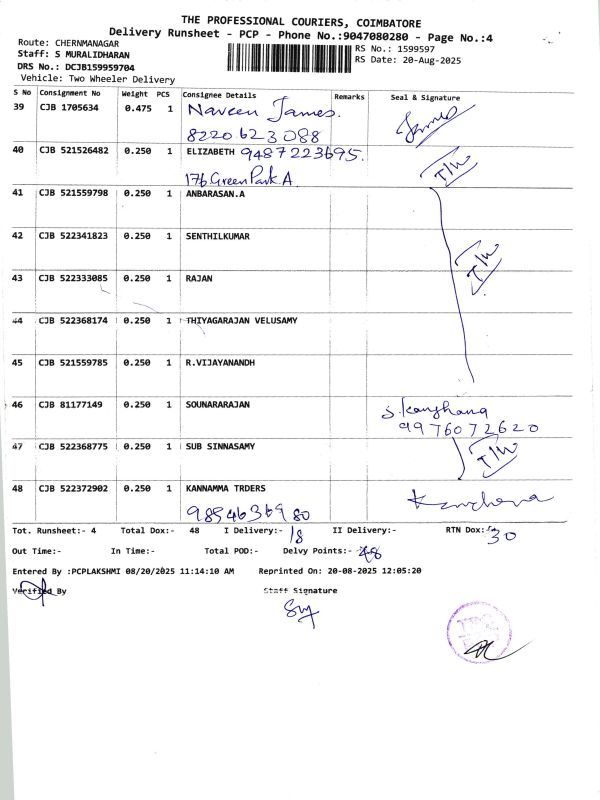 THE PROFESSIONAL COURIERS, COIMBATORE
Delivery Runsheet - PCP - Phone No.:9047080280 - Page No.:4
Route: CHERNMANAGAR
Staff: S MURALIDHARAN
DRS No.: DCJB159959704
Vehicle: Two Wheeler Delivery
RS No.: 1599597
RS Date: 20-Aug-2025
S No Consignment No Weight PCS Consignee Details Remarks Seal & Signature
39 CJB 1705634 0.475 1 Naveen James. James
8220623088
40 CJB 521526482 0.250 1 ELIZABETH 9487223695. T/W
176 Green Park A
41 CJB 521559798 0.250 1 ANBARASAN.A
42 CJB 522341823 0.250 1 SENTHILKUMAR T/W
43 CJB 522333085 0.250 1 RAJAN
44 CJB 522368174 0.250 1 THIYAGARAJAN VELUSAMY
45 CJB 521559785 0.250 1 R.VIJAYANANDH
46 CJB 81177149 0.250 1 SOUNARARAJAN S. Kanghana
9976072620
47 CJB 522368775 0.250 1 SUB SINNASAMY T/W
48 CJB 522372902 0.250 1 KANNAMMA TRDERS Kanchana
Tot. Runsheet:- 4 Total Dox:- 48 I Delivery:- 18 II Delivery:- RTN Dox:- 30
Out Time:- In Time:- Total POD:- Delvy Points:- 48
Entered By :PCPLAKSHMI 08/20/2025 11:14:10 AM Reprinted On: 20-08-2025 12:05:20
Verified By Staff Signature